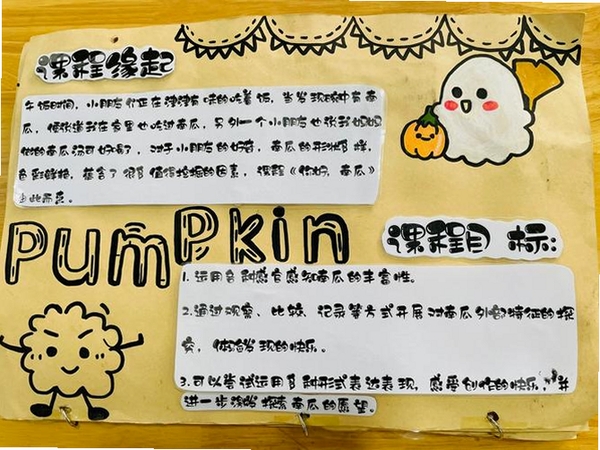 课程缘起
午饭时间，小朋友们正在津津有味的吃着饭，当发现碗中有南
瓜，便张道我在家里也吃过南瓜，另外一个小朋友也张我妈妈
做的南瓜汤可好喝了，对于小朋友的好奇，南瓜的形状多样，
色彩鲜艳，蕴含了很多值得挖掘的因素，课程《你好，南瓜》
由此而来。
PUMPKin
课程目标:
1.运用多种感官感知南瓜的丰富性。
2.通过观察、比较、记录等方式开展对南瓜外部特征的探
索，体验发现的快乐。
3.可以尝试运用多种形式表达表现，感受创作的快乐，并
进一步激发探索南瓜的愿望。